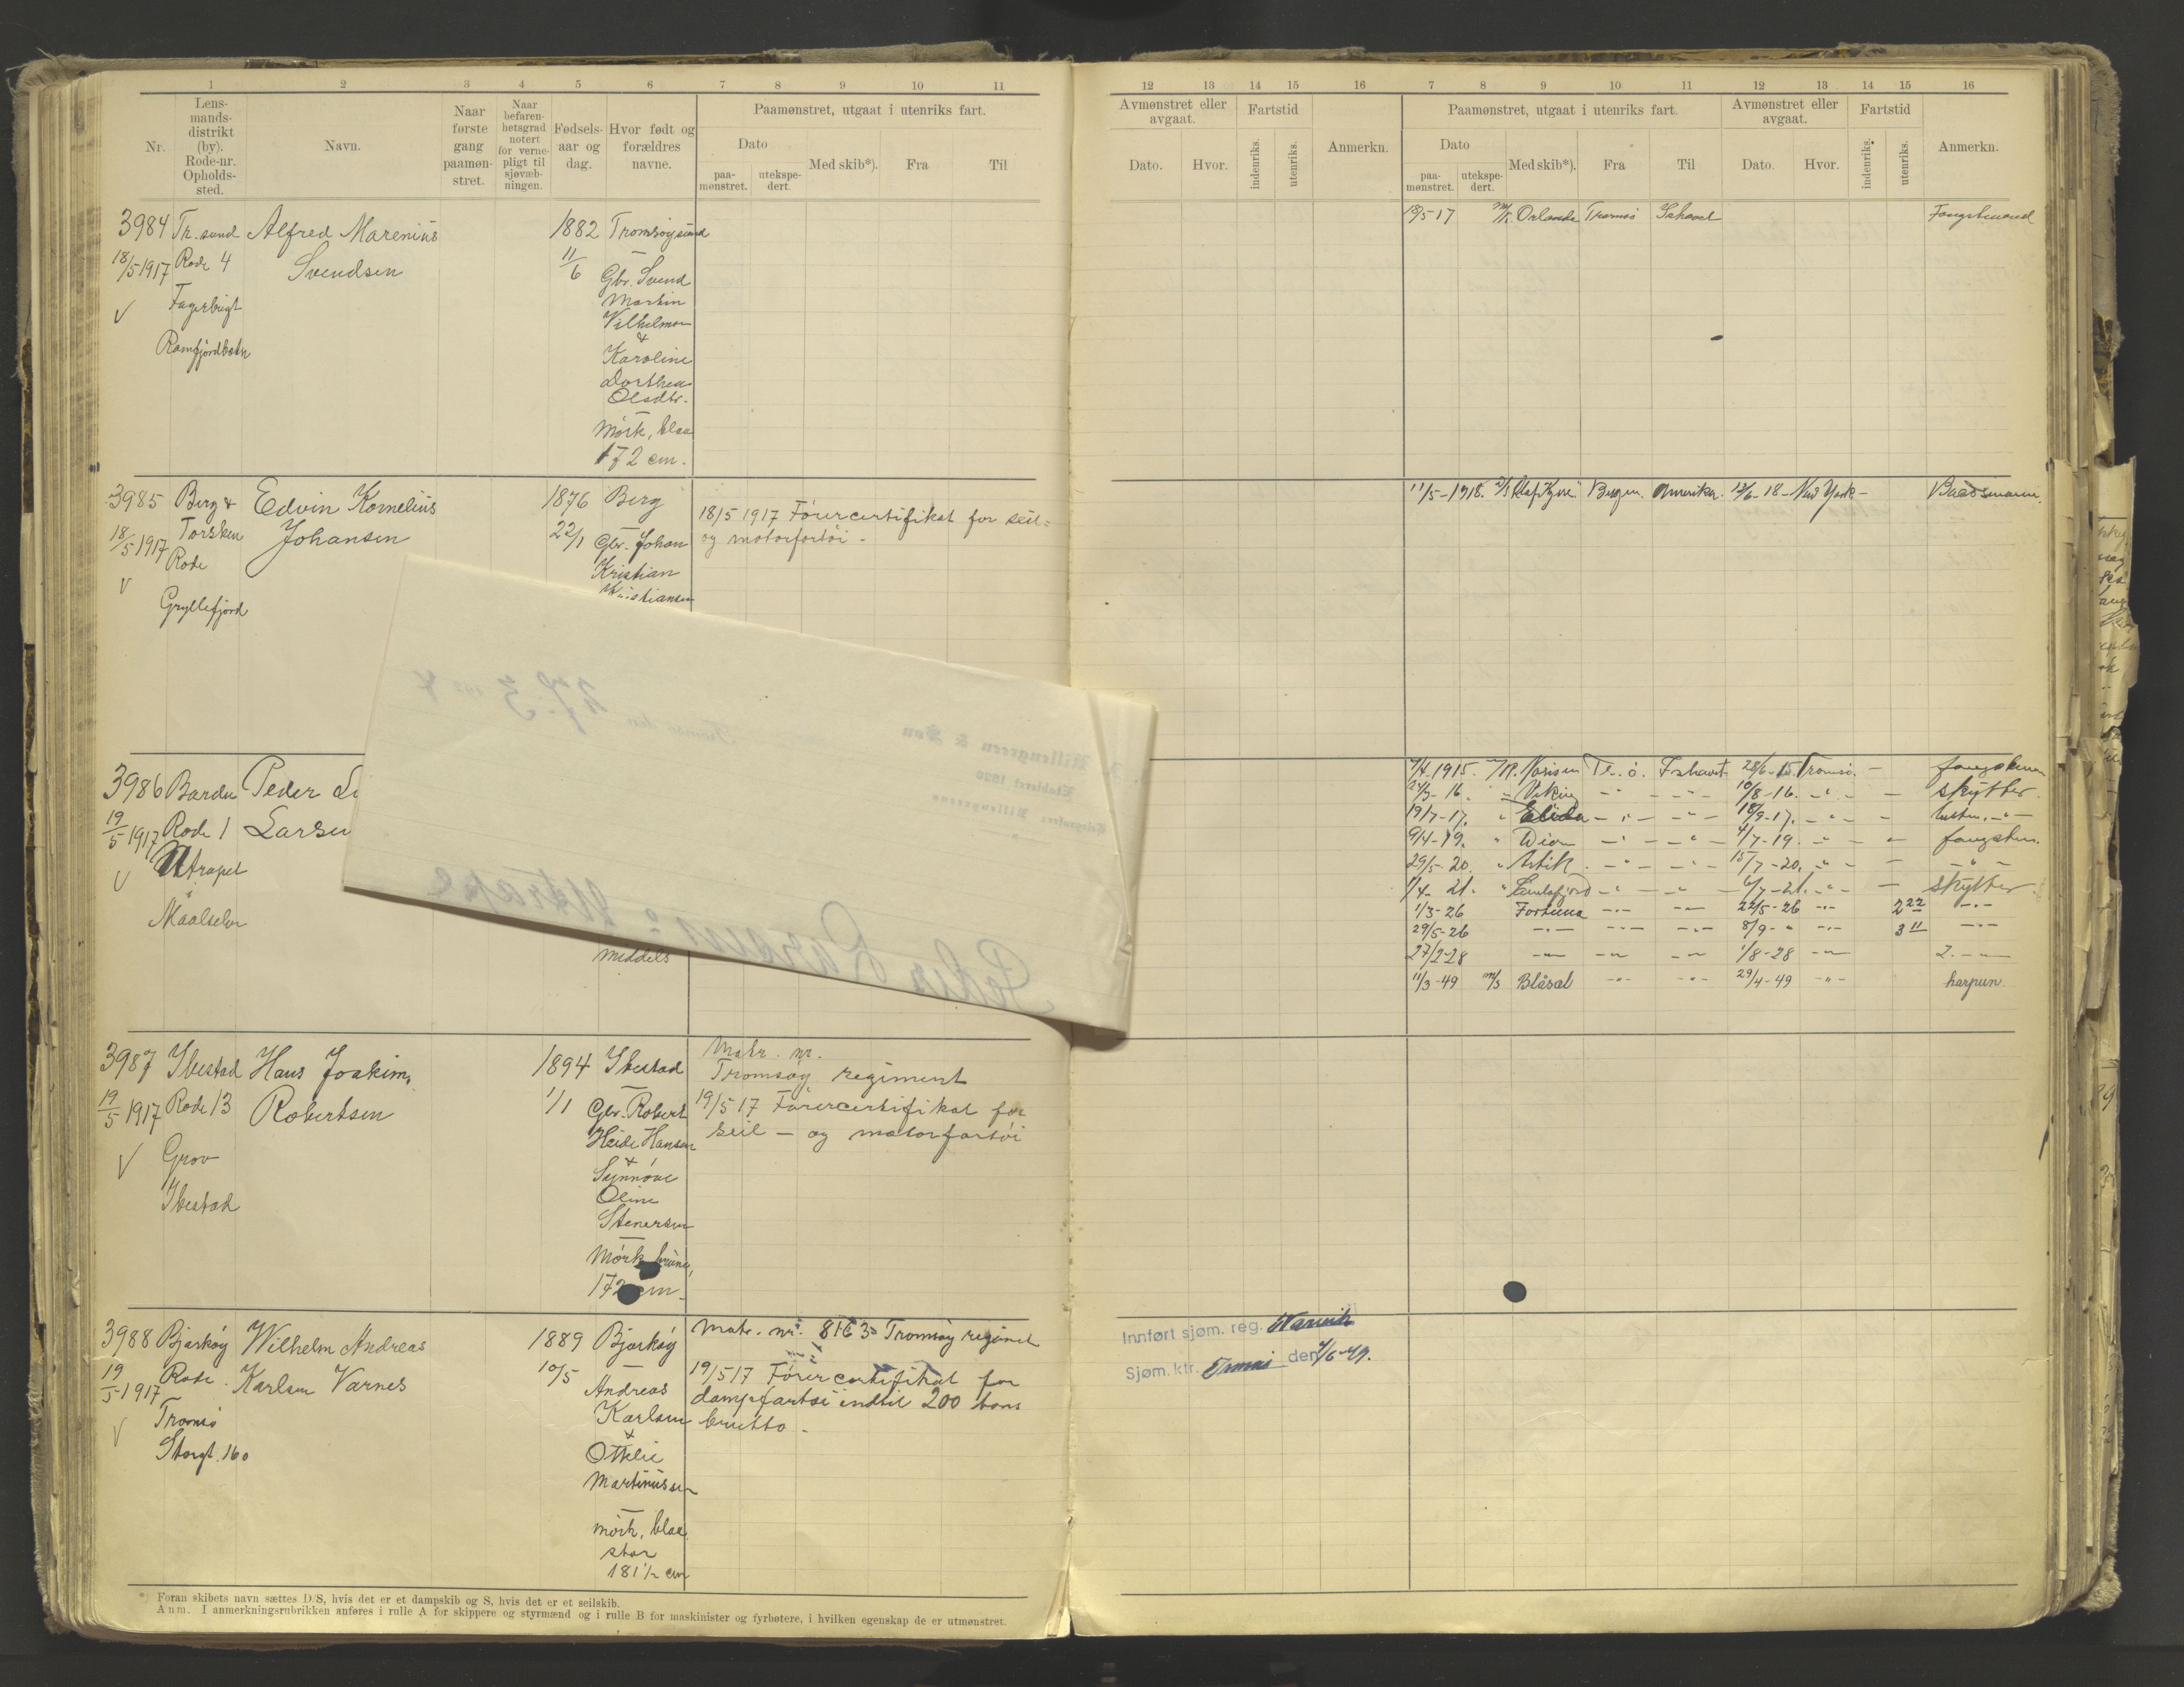 1 2 3 4 5 6 7 8 9 10 11
Nr.
Lens-
mands-
distrikt
(by).
Rode-nr.
Opholds-
sted.
Navn.
Naar
første
gang
paamøn-
stret.
Naar
befaren-
hetsgrad
notert
for verne-
pligt til
sjøvæb-
ningen.
Fødsels-
aar og
dag.
Hvor født og
forældres
navne.
Paamønstret, utgaat i utenriks fart.
Dato
paa-
mønstret.
utekspe-
dert.
Med skib*).
Fra
Til
3984 Tr. sund Alfred Marenius 1882 Tromsøysund
18/5 1917 Rode 4 Svendsen 11/6 Gbr. Svend
Fagerbugt Martin
Vilhelmsen
Ramfjordbotn &
Karoline
Dorthea
Olsdtr.
Mörk, blaa
172 cm.
3985 Berg & Edvin Kornelius 1876 Berg
18/5 1917 Torsken Johansen 22/1 Gbr. Johan
Rode Kristian
Gryllefjord Kristiansen
18/5 1917 Förercertifikat for seil=
og motorfartöi -
3986 Bardu Peder
19/5 1917 Rode 1 Larsen
Maalselv
middels
3987 Ibestad Hans Joakim 1894 Ibestad
19/5 1917 Rode 13 Robertsen 1/1 Gbr. Robert
Grov Heide Hansen
Ibestad &
Synnöve
Oline
Stenersen
Mörk, brune,
172 cm.
Matr. nr.
Tromsøy regiment
19/5 17 Förercertifikat for
seil - og motorfartöi
3988 Bjarköy Wilhelm Andreas 1889 Bjarköy
19/5 1917 Rode Karlsen Varnes 10/5 Andreas
Tromsö Karlsen
Storgt. 160 &
Ottelie
Martinussen
mörk, blaa
stor
181 1/2 cm
Matr. nr. 816 Tromsøy regiment
19/5 17 Förercertifikat for
dampfartöi indtil 200 tons
brutto -
*) Foran skibets navn sættes D/S, hvis det er et dampskib og S, hvis det er et seilskib.
Anm. I anmerkningsrubrikken anføres i rulle A for skippere og styrmænd og i rulle B for maskinister og fyrbøtere, i hvilken egenskap de er utmønstret.
Killengreen & Søn
Etableret 1820
Tromsø den 27.3
Peder Larsen
12 13 14 15 16 7 8 9 10 11 12 13 14 15 16
Avmønstret eller
avgaat.
Dato. Hvor.
Fartstid
indenriks.
utenriks.
Anmerkn.
Paamønstret, utgaat i utenriks fart.
Dato
paa-
mønstret.
utekspe-
dert.
Med skib*).
Fra
Til
Avmønstret eller
avgaat.
Dato. Hvor.
Fartstid
indenriks.
utenriks.
Anmerkn.
18/5 17 Tromsö Ishavet Fangstmand
11/5-1918. Bergen. Amerika. -18- New York-
1915. Ishavet 28/6-15. Tromsö.
16. -16. skytter
19/7-17. -17.
9/4-19. 4/7-19. fangstm.
29/5-20. 15/7-20.
21. -21. skytter
1/3-26 Fortuna 22/5-26 2 22
29/5-26 8/9- 3 11
27/2-28 1/8-28 2.
11/3-49 m/s Blåsel 29/4-49 harpun.
Innført sjøm. reg. Narvik
Sjøm. ktr. Tromsö den 7/6-49.